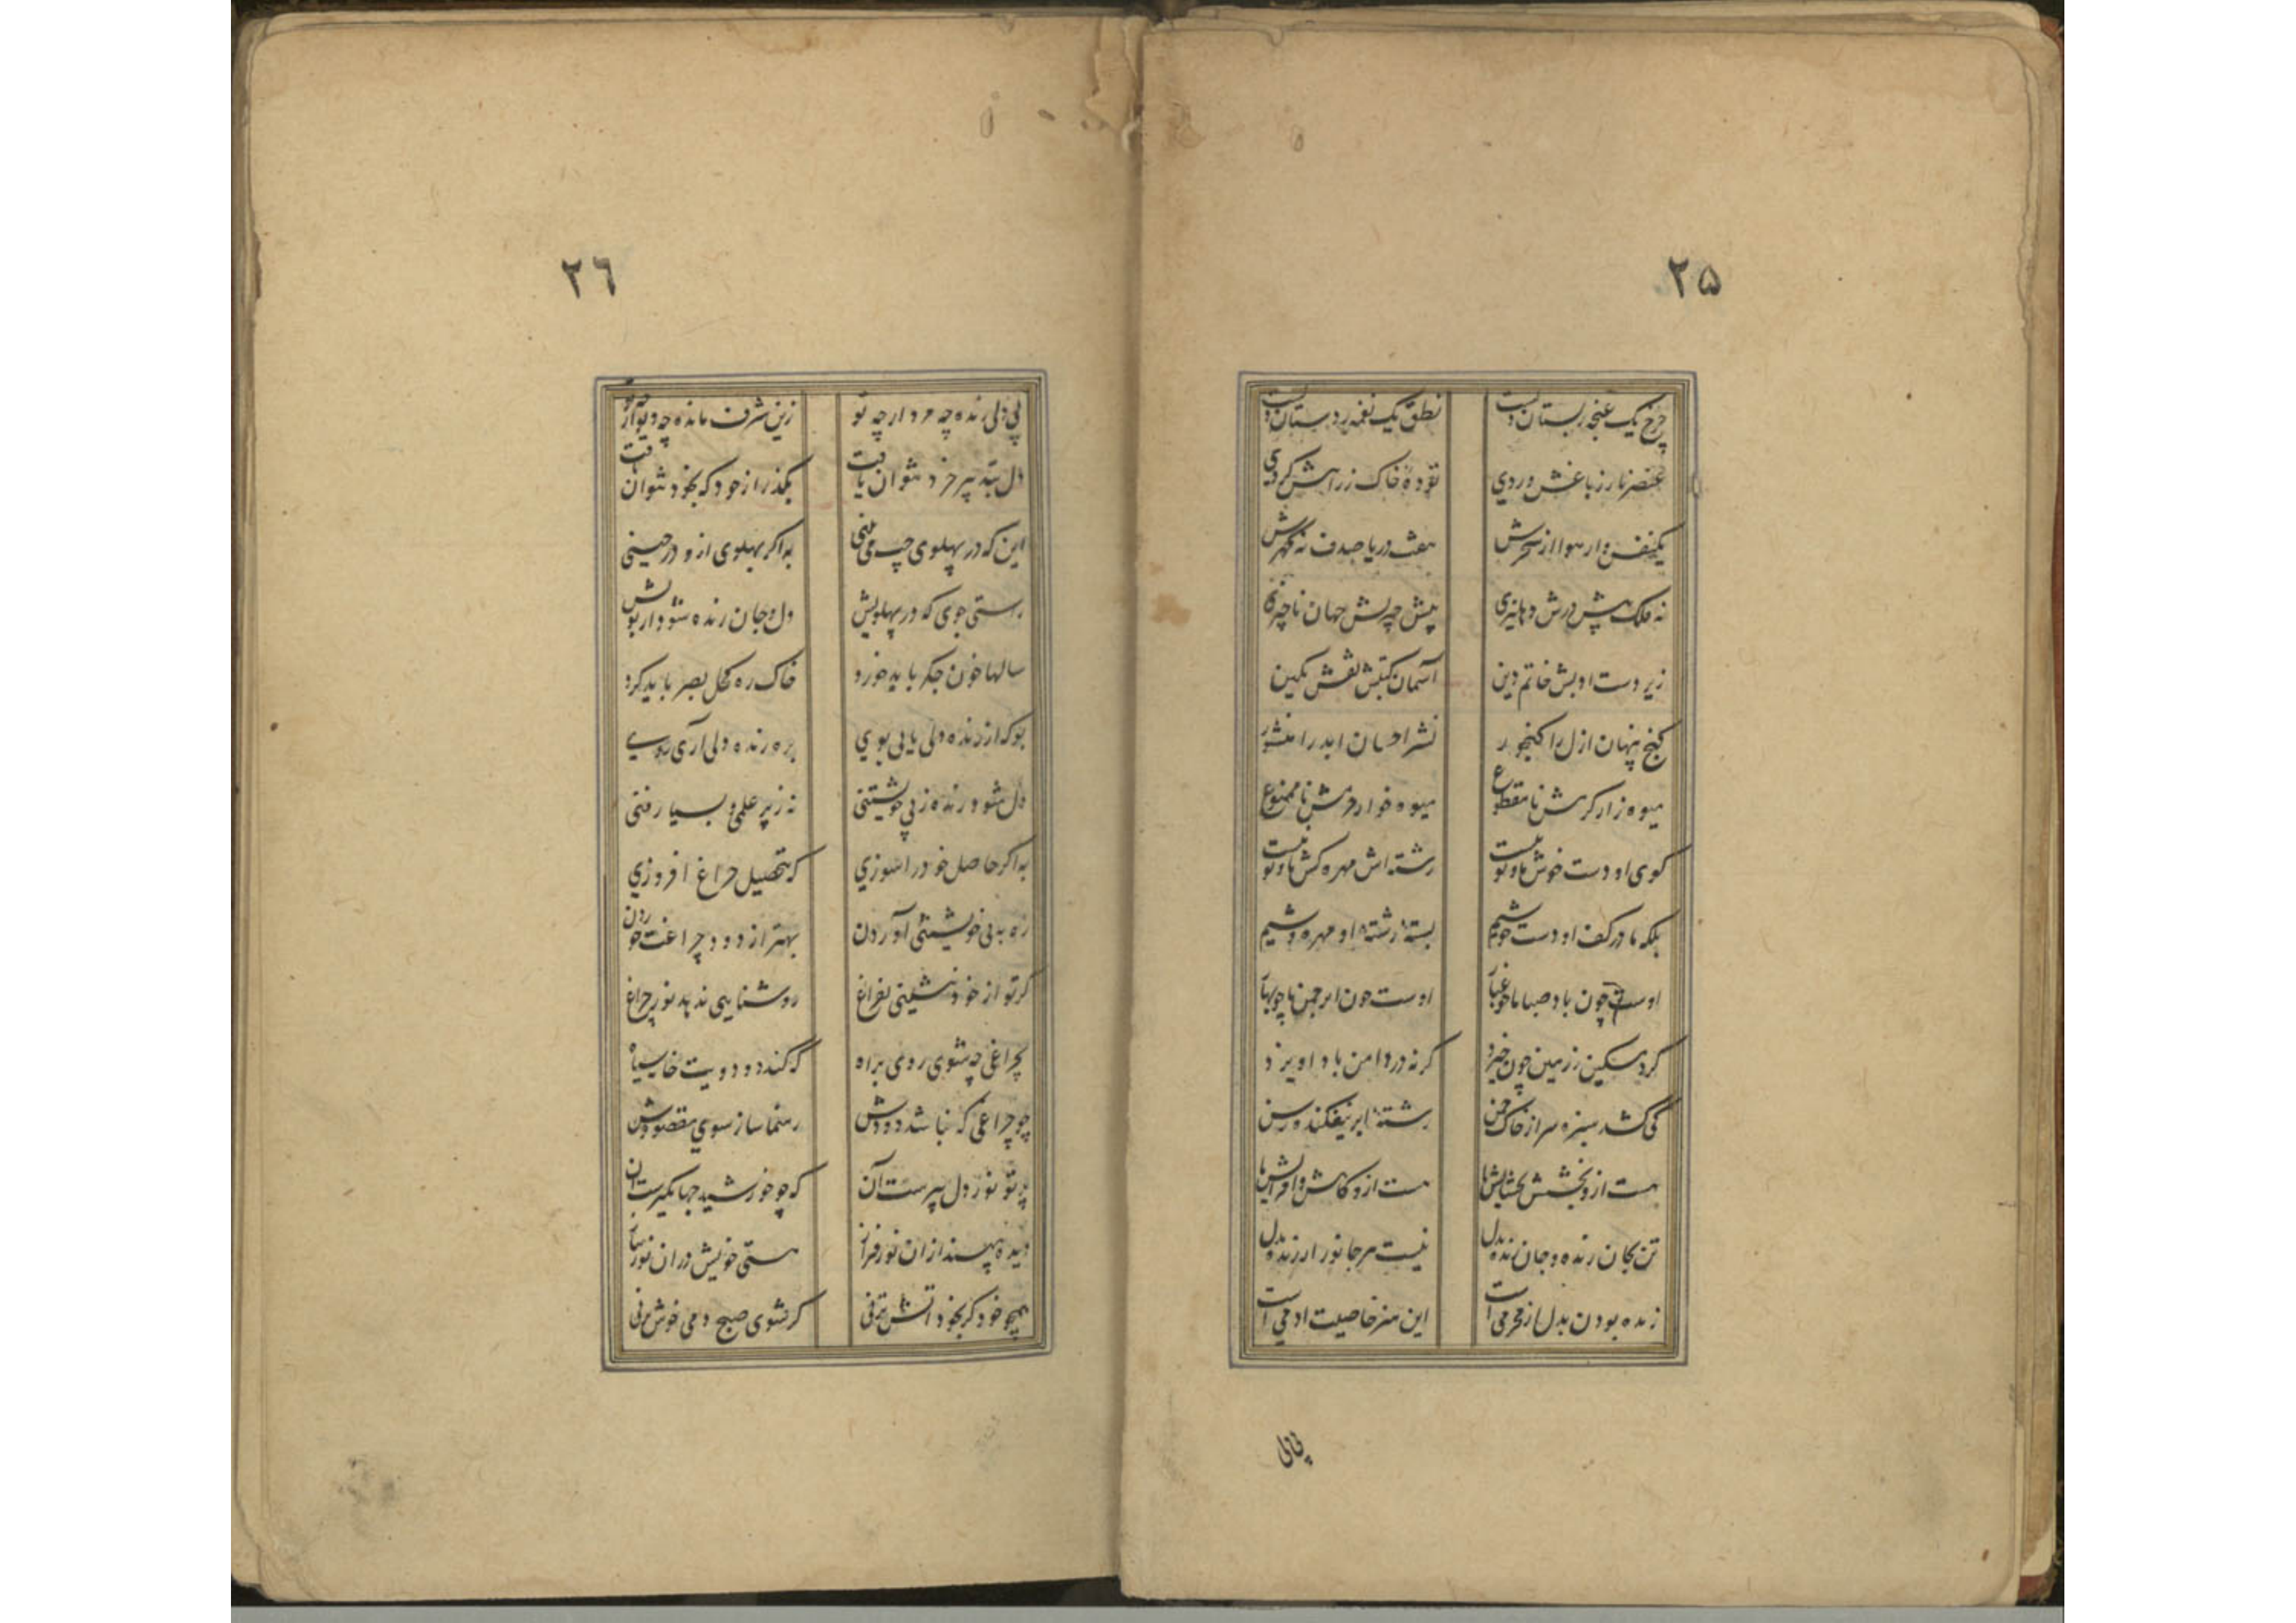 ۲۵
چرخ یک غنچه ز بستان ویست نطق یک نغمه ز دستان ویست
عنصر نار ز باغش وردی تودهٔ خاک ز راهش گردی
یکنفس وار هوا از سحرش هفت دریا صدف نه گهرش
نه فلک پیش درش دهلیزی پیش چیزیش جهان ناچیزی
زیر دست ادبش خاتم دین آسمان کتبش نقش نگین
گنج پنهان ازل را گنجور نشر احسان ابد را منشور
میوه زار کرمش نامقطوع میوه خوار حرمش ناممنوع
گوی او دست خوش ما و تو نیست رشته اش مهره کش ما و تو نیست
بلکه ما در کف او دست خوشیم بستهٔ رشتهٔ او مهره وشیم
اوست چون باد صبا ما چو غبار اوست چون ابر چمن ما چو بهار
گرد مسکین ز زمین چون خیزد گر نه در دامن باد آویزد
کی کشد سبزه سر از خاک چمن رشتهٔ ابر نیفکنده رسن
هست ازو بخشش و بخشایش‌ها هست ازو کاهش و افزایش‌ها
تن بجان زنده و جان زنده بدل نیست هر جانور ارزنده بدل
زنده بودن بدل از محرمی است این هنر خاصیت آدمی است
بی دلی
۲۶
بی دلی زنده چه مردار چه تو زین شرف مانده چه دیوار چه تو
دل بتدبیر خرد نتوان یافت بگذر از خود که بخود نتوان یافت
این که در پهلوی چپ می بینی به اگر پهلوی ازو درچینی
راستی جوی که در پهلویش دل و جان زنده شود از بویش
سالها خون جگر باید خورد خاک ره کحل بصر باید کرد
بو که از زنده دلی یابی بوی بره زنده دلی آری روی
دل شود زنده ز بی خویشتنی نه ز پر علمی و بسیار فنی
به اگر حاصل خود را سوزی که بتحصیل چراغ افروزی
ره به بی خویشتنی آوردن بهتر از دود چراغت خوردن
گر تو از خود ننشینی بفراغ روشنایی ندهد نور چراغ
بچراغی چه شوی روی براه که کند دود ویت خانه سیاه
جو چراغی که نباشد دودش رهنما ساز سوی مقصودش
پرتو نور دل پیرست آن که چو خورشید جهانگیرست آن
دیده مپسند از آن نور فراز هستی خویش در آن نور بباز
همچو خود گر بخود آتش نزنی گر شوی صبح دمی خوش نزنی